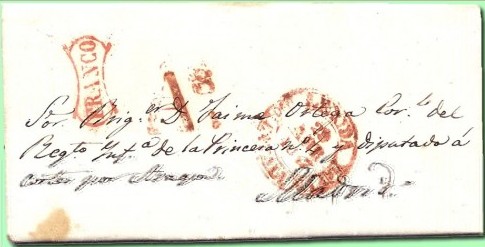 FRANCO
1 Rs.
Sor. Briger. D. Jaime Ortega Cor.l del
Regto. Infa. de la Princesa nº 4 y diputado á
cortes por Aragon
Madrid